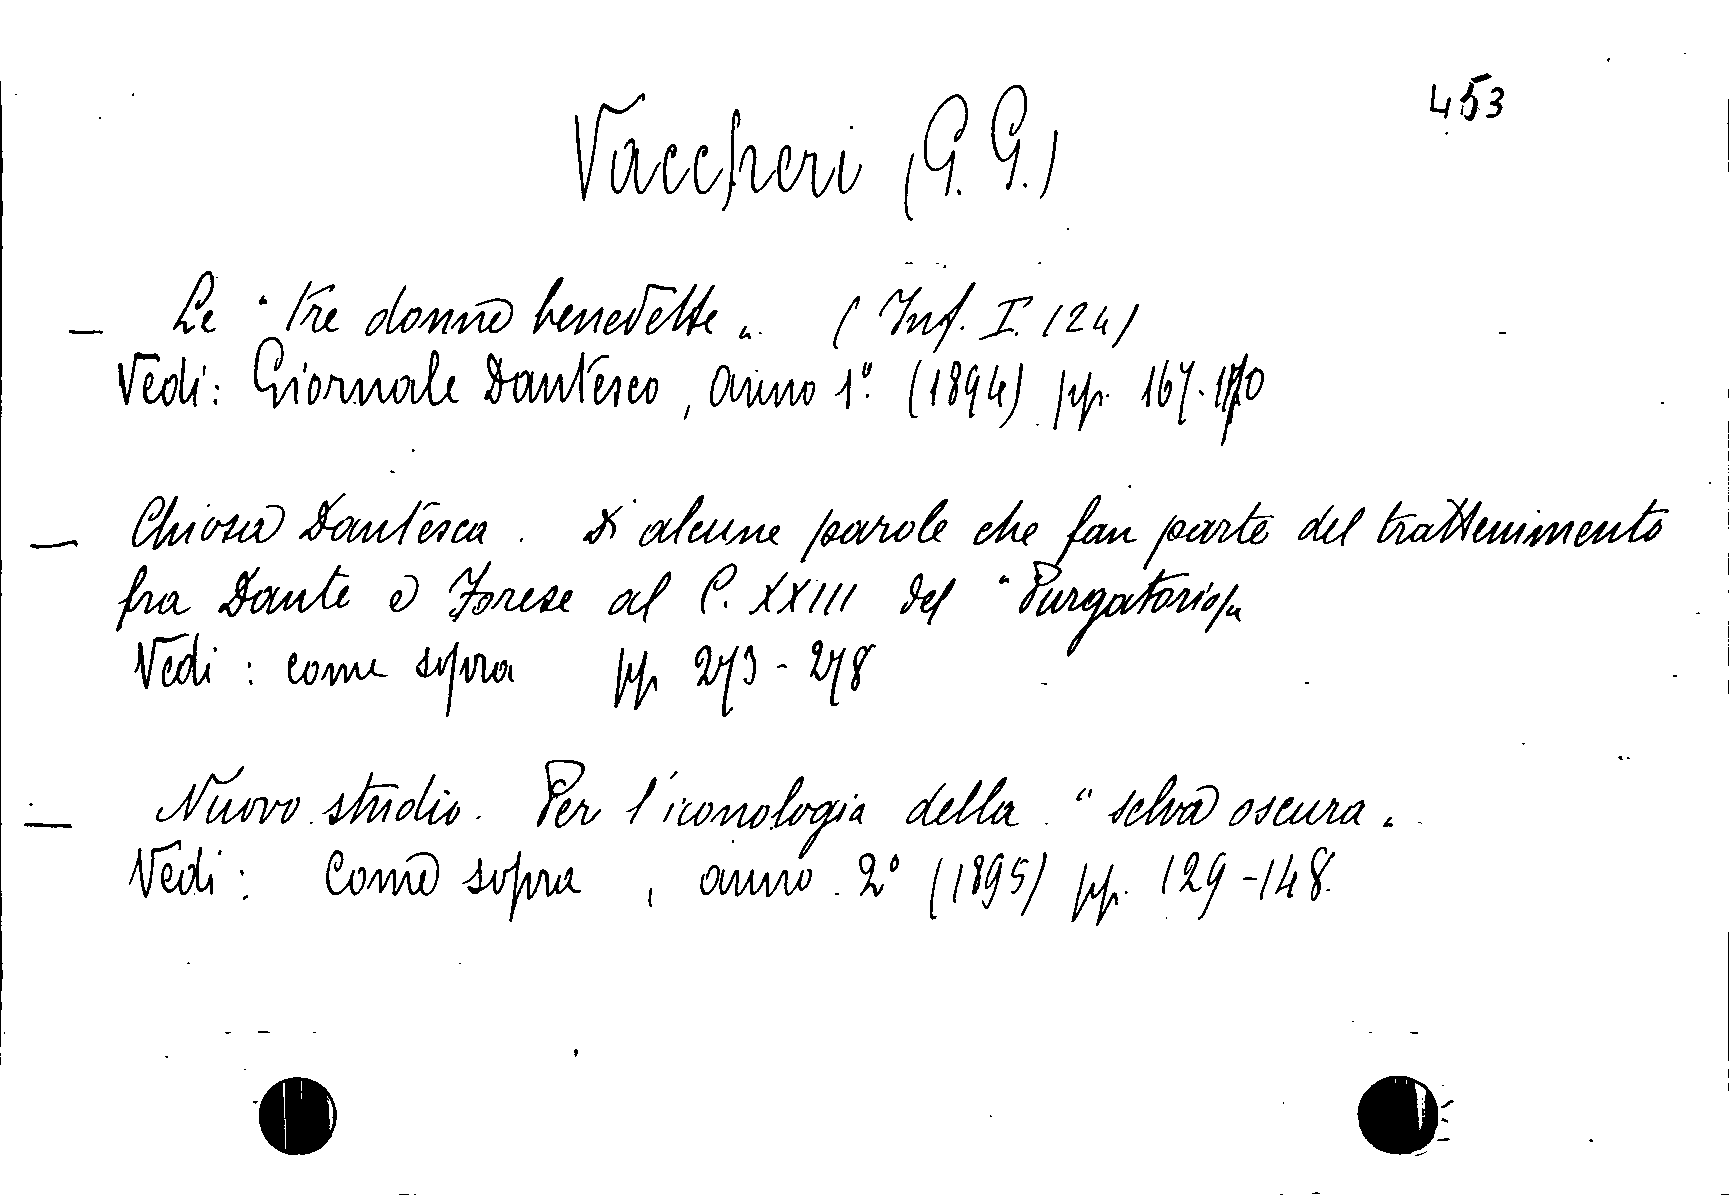 453
Vaccheri (G. G.)
— Le "tre donne benedette„ (Inf. I. 124)
Vedi: Giornale Dantesco, anno 1º (1894) pp. 167-170
— Chiosa Dantesca. Di alcune parole che fan parte del trattenimento
fra Dante e Forese al C. XXIII del "Purgatorio„
Vedi: come sopra pp 273-278
— Nuovo studio. Per l'iconologia della "selva oscura„
Vedi: Come sopra, anno 2º (1895) pp. 129-148.